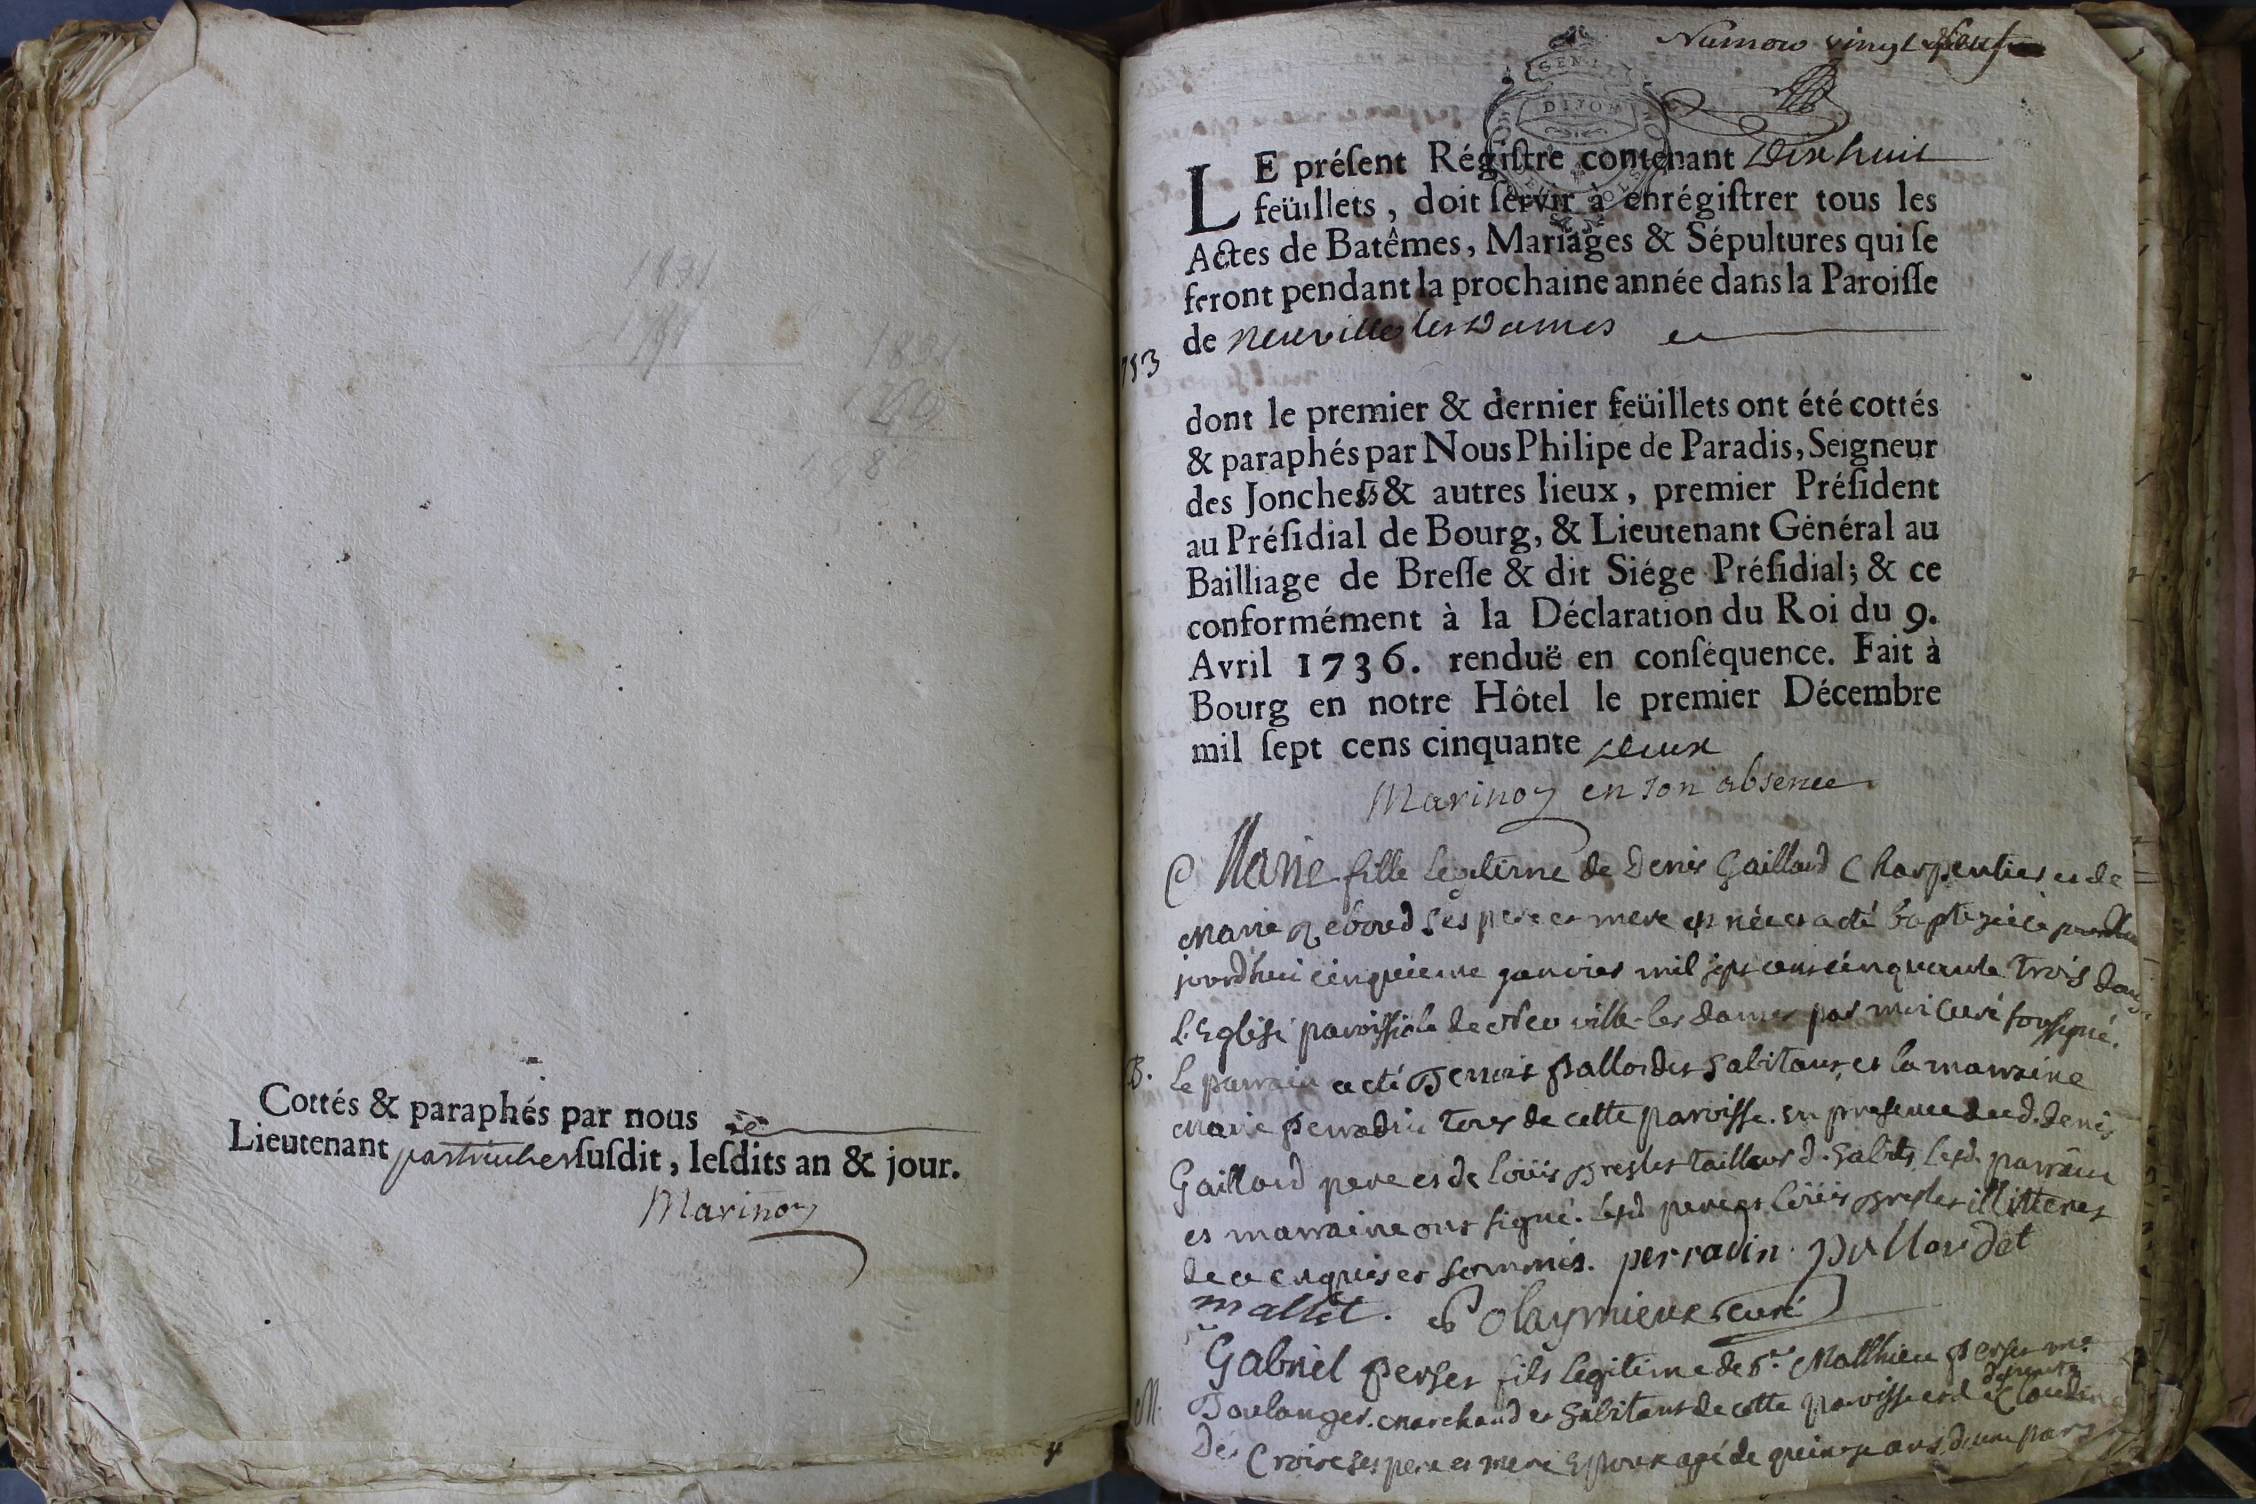 1831
1831
Cottés & paraphés par nous
Lieutenant particulier susdit, lesdits an & jour.
Marinon
Numero vingt neuf
GEN
DIJON
LE présent Régistre contenant Dix huit
feüillets, doit servir à enrégistrer tous les
Actes de Batêmes, Mariages & Sépultures qui se
feront pendant la prochaine année dans la Paroisse
de Neuville les Dames
1753
dont le premier & dernier feüillets ont été cottés
& paraphés par Nous Philipe de Paradis, Seigneur
des Jonches & autres lieux, premier Président
au Présidial de Bourg, & Lieutenant Général au
Bailliage de Bresse & dit Siége Présidial; & ce
conformément à la Déclaration du Roi du 9.
Avril 1736. renduë en conséquence. Fait à
Bourg en notre Hôtel le premier Décembre
mil sept cens cinquante deux
Marinon en son absence
Marie fille legitime de Denis Gaillard Charpentier et de
Marie Reboud ses pere et mere est née et a eté baptizée
jourdhui cinquieme janvier mil sept cens cinquante trois dans
L'Eglise paroissiale de Neuville-les dames par moi curé soussigné.
B. Le parrain a eté habitant, et la marraine
Marie perradin tous de cette paroisse. en presence dud. denis
Gaillard pere et de Loüis tailleur d. habits, lesd. parrain
et marraine ont signé. lesd pere et Loüis illitteres
de ce enquis et sommés. perradin. pollardet
mallet. curé
M. Gabriel perset fils legitime de Sr. Matthieu perset me.
Boulanger. marchand et habitant de cette paroisse et d
De Croire ses pere et mere Epoux agé de quinze ans d'une part